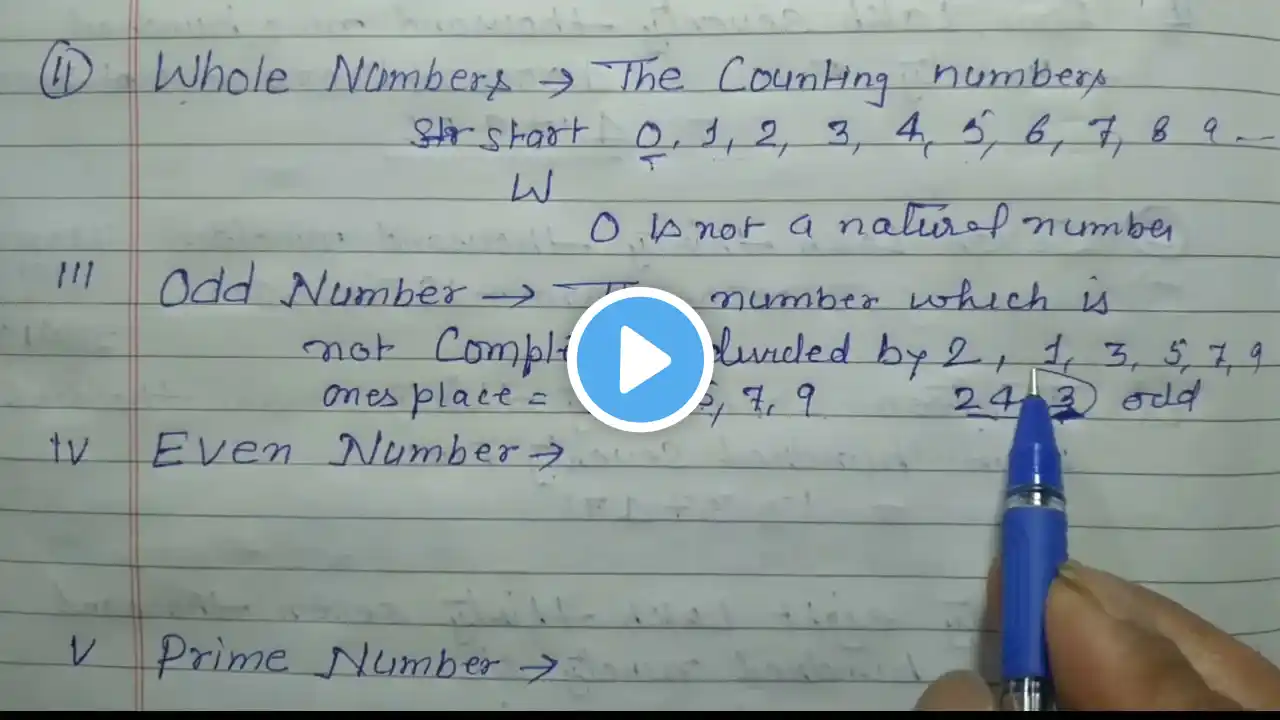 II Whole Numbers → The Counting numbers
Str start 0, 1, 2, 3, 4, 5, 6, 7, 8 9 --
W
0 is not a natural number
III Odd Number → number which is
not divided by 2, 1, 3, 5, 7, 9
ones place = 5, 7, 9 24 3 odd
IV Even Number →
V Prime Number →